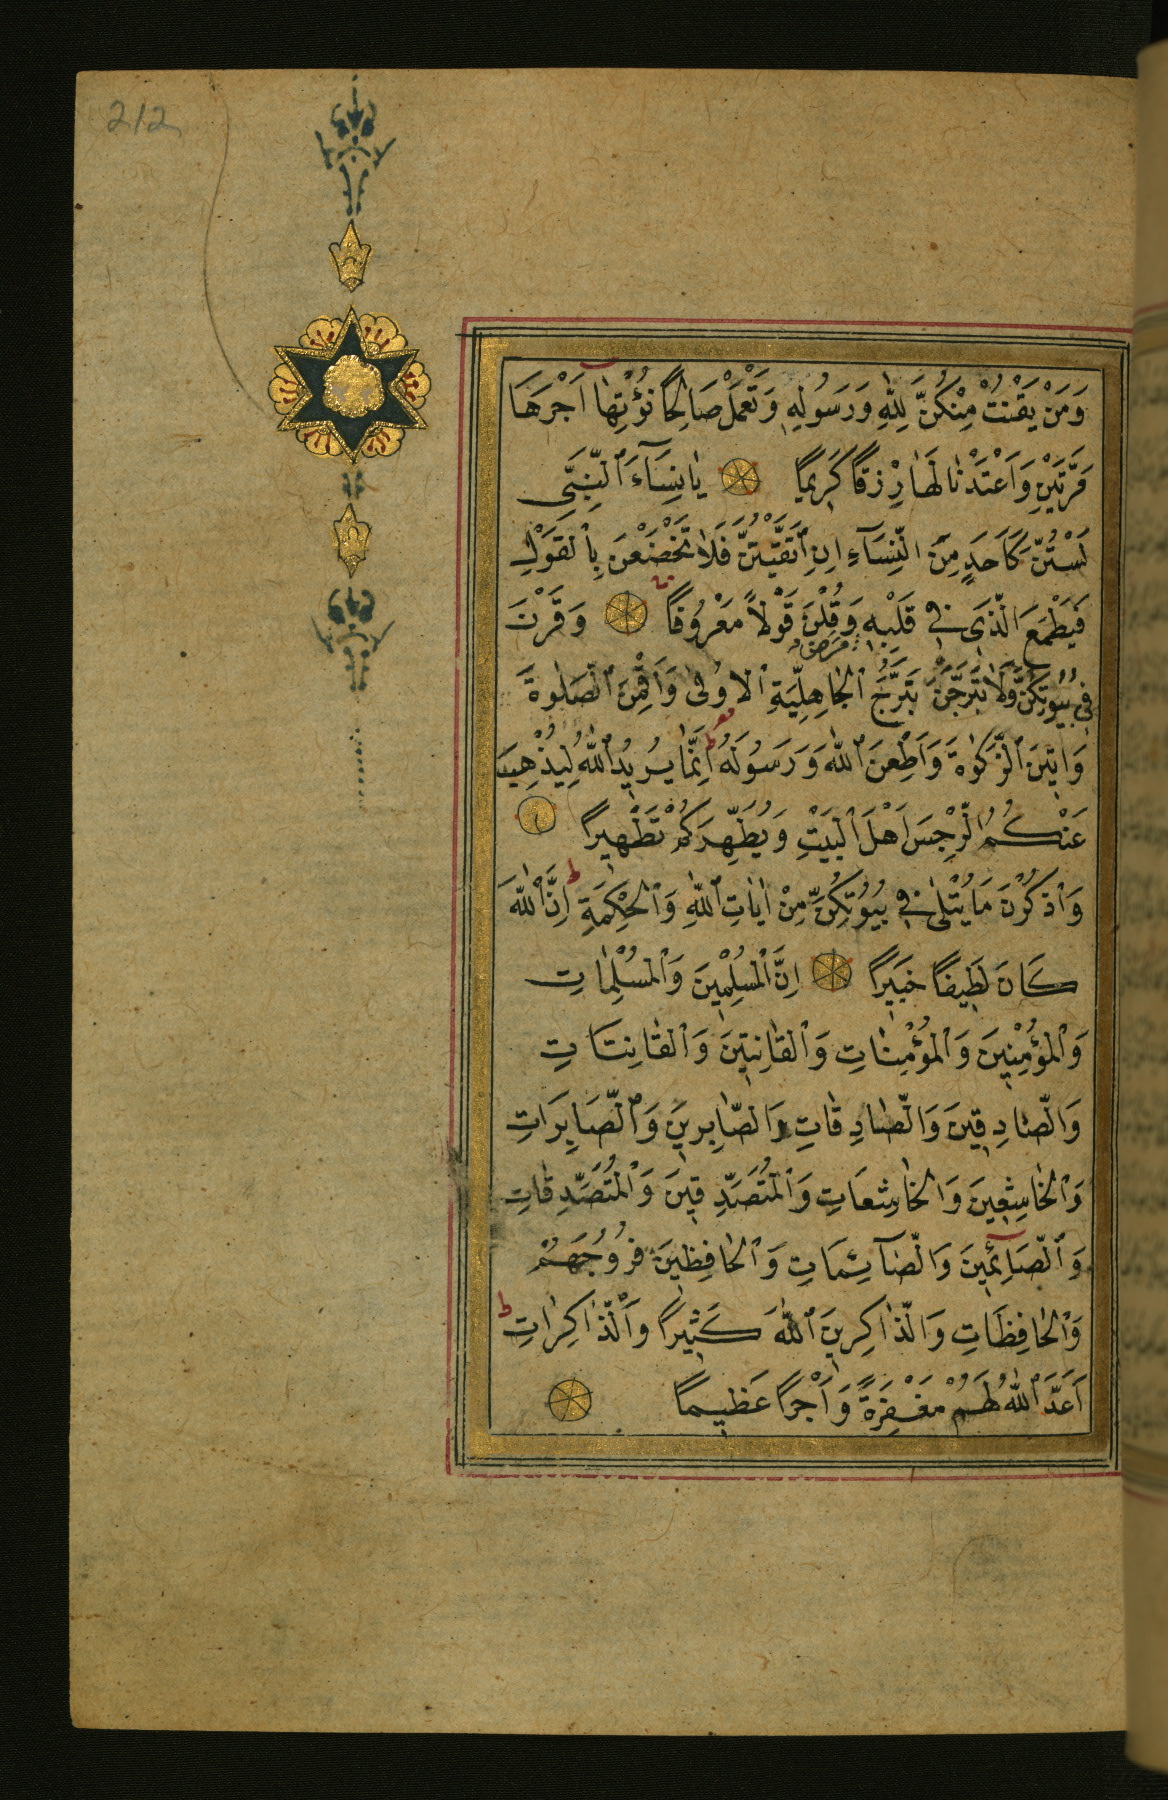 212
وَمَنْ يَقْنُتْ مِنْكُنَّ لِلّٰهِ وَرَسُولِهِ وَتَعْمَلْ صَالِحًا نُؤْتِهَا اَجْرَهَا
مَرَّتَيْنِ وَاَعْتَدْنَا لَهَا رِزْقًا كَرِيمًا يَا نِسَآءَ ٱلنَّبِيِّ
لَسْتُنَّ كَاَحَدٍ مِنَ النِّسَآءِ اِنِ ٱتَّقَيْتُنَّ فَلَا تَخْضَعْنَ بِالْقَوْلِ
فَيَطْمَعَ الَّذِى فِى قَلْبِهِ وَقُلْنَ قَوْلًا مَعْرُوفًا وَقَرْنَ
مرض
فِى بُيُوتِكُنَّ وَلَا تَبَرَّجْنَ تَبَرُّجَ ٱلْجَاهِلِيَّةِ ٱلْاُولٰى وَاَقِمْنَ ٱلصَّلٰوةَ
وَاٰتِينَ ٱلزَّكٰوةَ وَاَطِعْنَ ٱللّٰهَ وَرَسُولَهُ اِنَّمَا يُرِيدُ ٱللّٰهُ لِيُذْهِبَ
عَنْكُمُ الرِّجْسَ اَهْلَ ٱلْبَيْتِ وَيُطَهِّرَكُمْ تَطْهِيرًا
وَٱذْكُرْنَ مَا يُتْلٰى فِى بُيُوتِكُنَّ مِنْ اٰيَاتِ ٱللّٰهِ وَٱلْحِكْمَةِ اِنَّ ٱللّٰهَ
كَانَ لَطِيفًا خَبِيرًا اِنَّ ٱلْمُسْلِمِينَ وَٱلْمُسْلِمَاتِ
وَٱلْمُؤْمِنِينَ وَٱلْمُؤْمِنَاتِ وَٱلْقَانِتِينَ وَٱلْقَانِتَاتِ
وَالصَّادِقِينَ وَالصَّادِقَاتِ وَالصَّابِرِينَ وَٱلصَّابِرَاتِ
وَٱلْخَاشِعِينَ وَالْخَاشِعَاتِ وَٱلْمُتَصَدِّقِينَ وَٱلْمُتَصَدِّقَاتِ
وَٱلصَّآئِمِينَ وَالصَّآئِمَاتِ وَٱلْحَافِظِينَ فُرُوجَهُمْ
وَٱلْحَافِظَاتِ وَالذَّاكِرِينَ ٱللّٰهَ كَثِيرًا وَٱلذَّاكِرَاتِ
اَعَدَّ ٱللّٰهُ لَهُمْ مَغْفِرَةً وَاَجْرًا عَظِيمًا